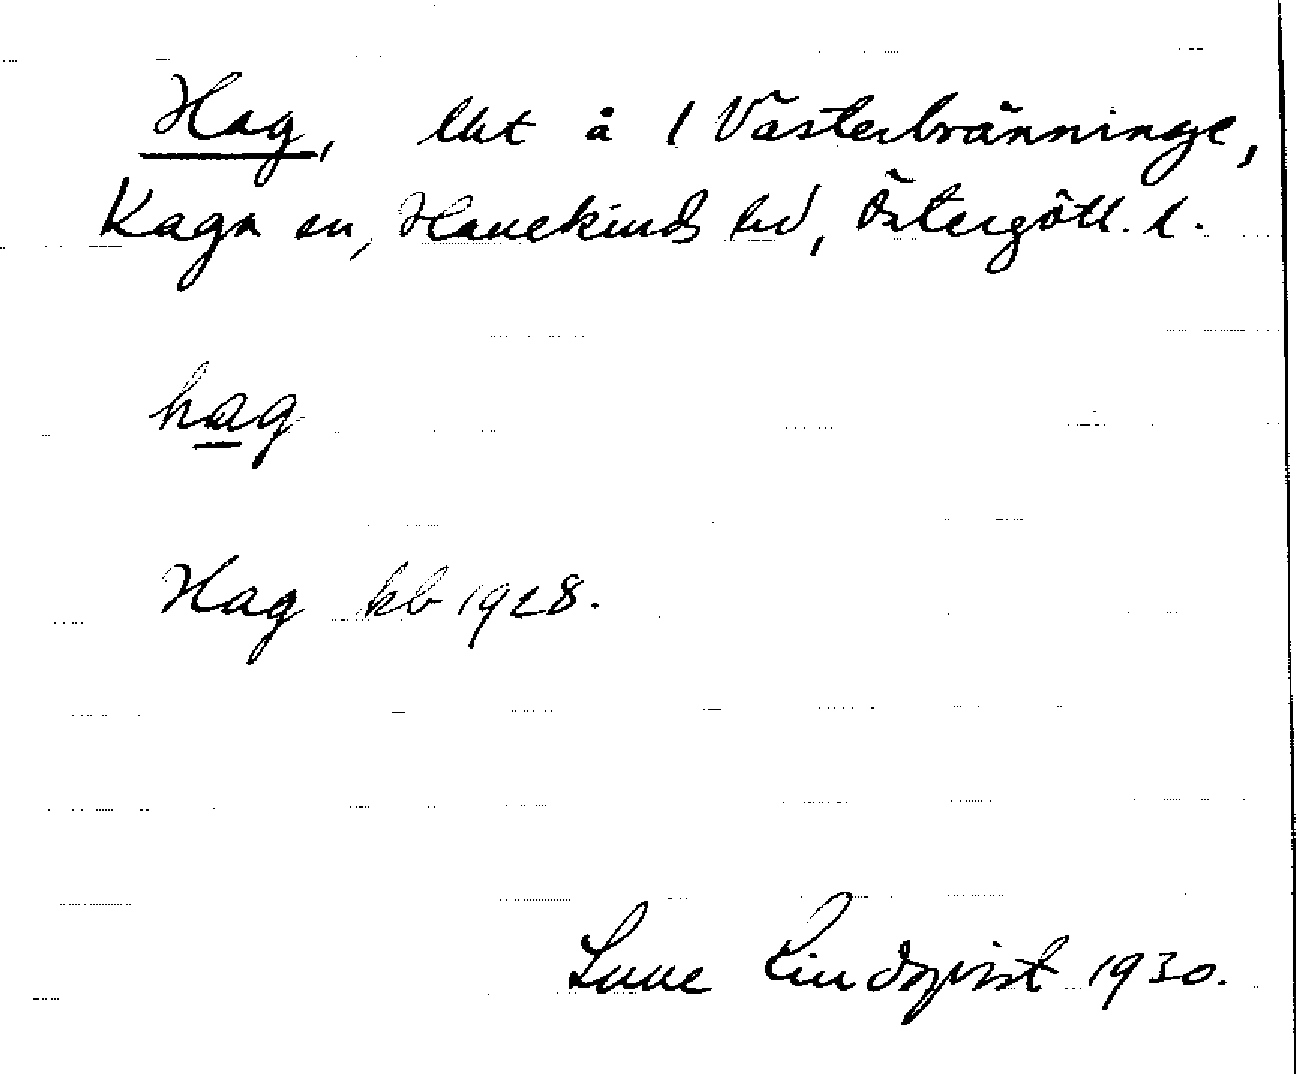 Hag, lht å 1 Västerbränninge,
Kaga sn, Hanekinds hd, Östergötl. l.
hag
Hag kb 1928.
Sune Lindqvist 1930.